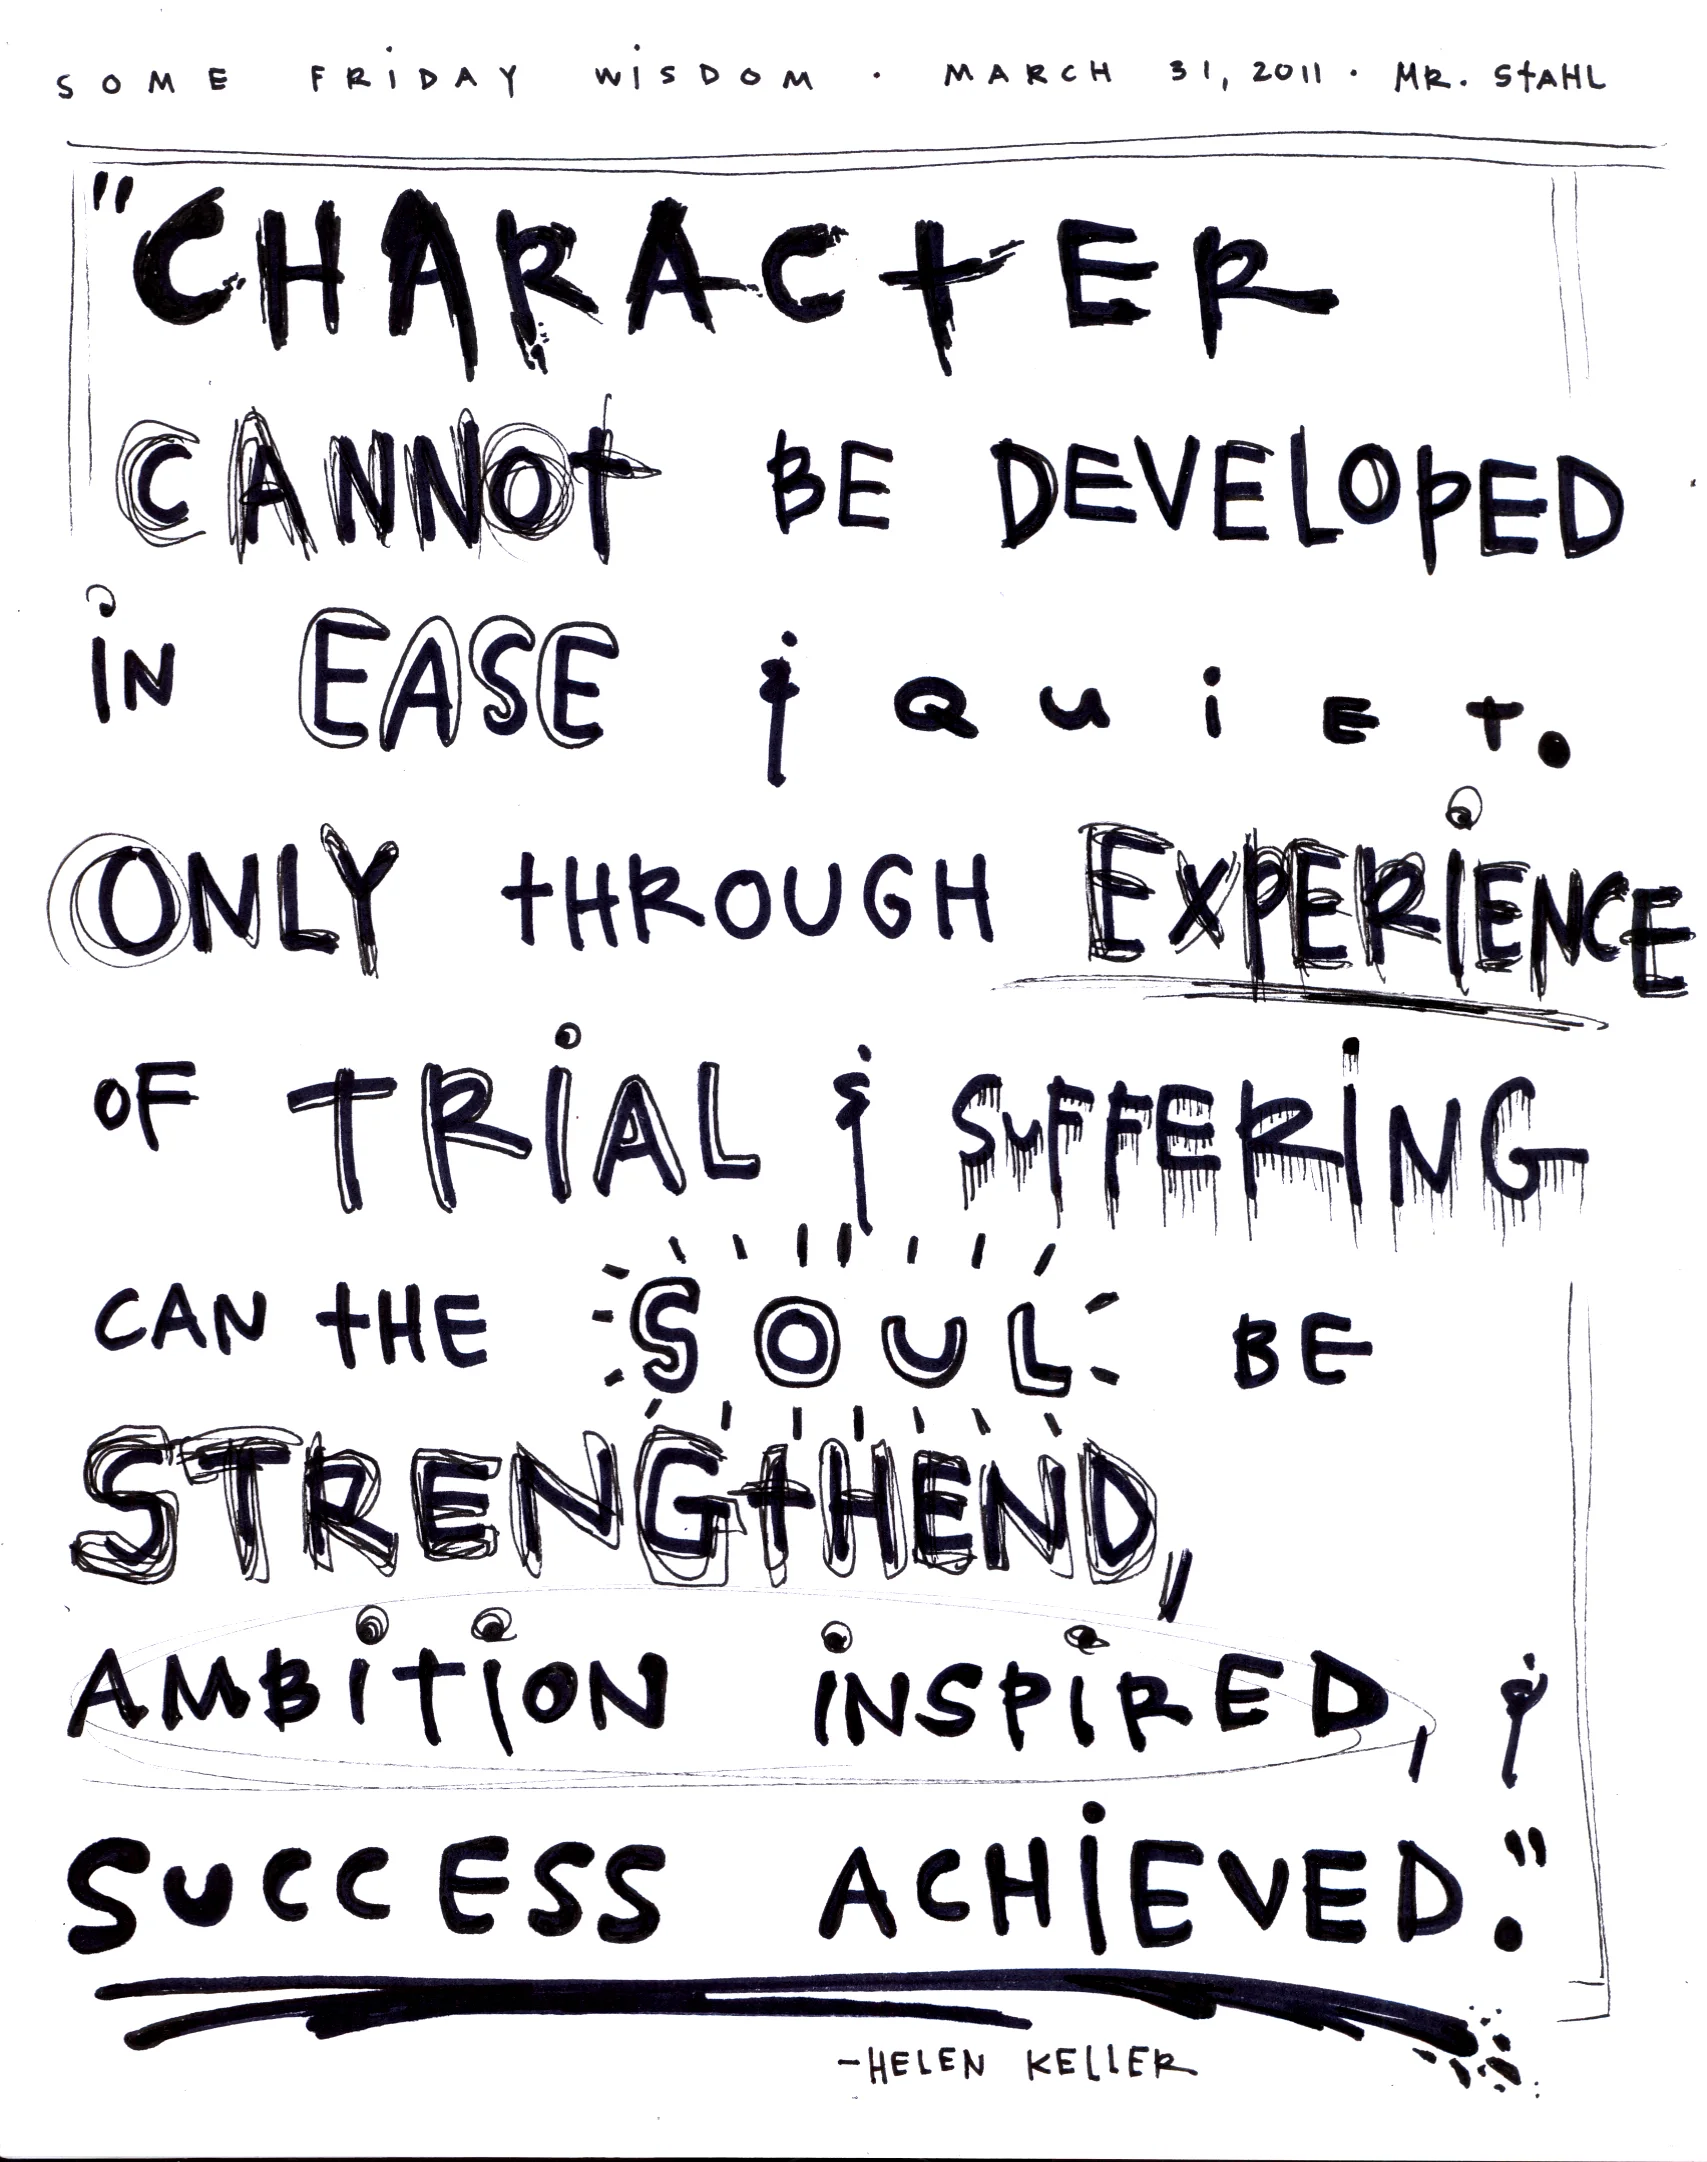 SOME FRiDAY WiSDOM · MARCH 31, 2011 · MR. StAHL
"CHARACtER
CANNOt BE DEVELOPED
iN EASE & QuiET.
ONLY tHROUGH EXPERiENCE
OF TRiAL & SuFFERiNG
CAN tHE SOUL BE
STRENGtHEND,
AMBiTiON iNSPiRED, &
SuCCESS ACHiEVED."
-HELEN KELLER